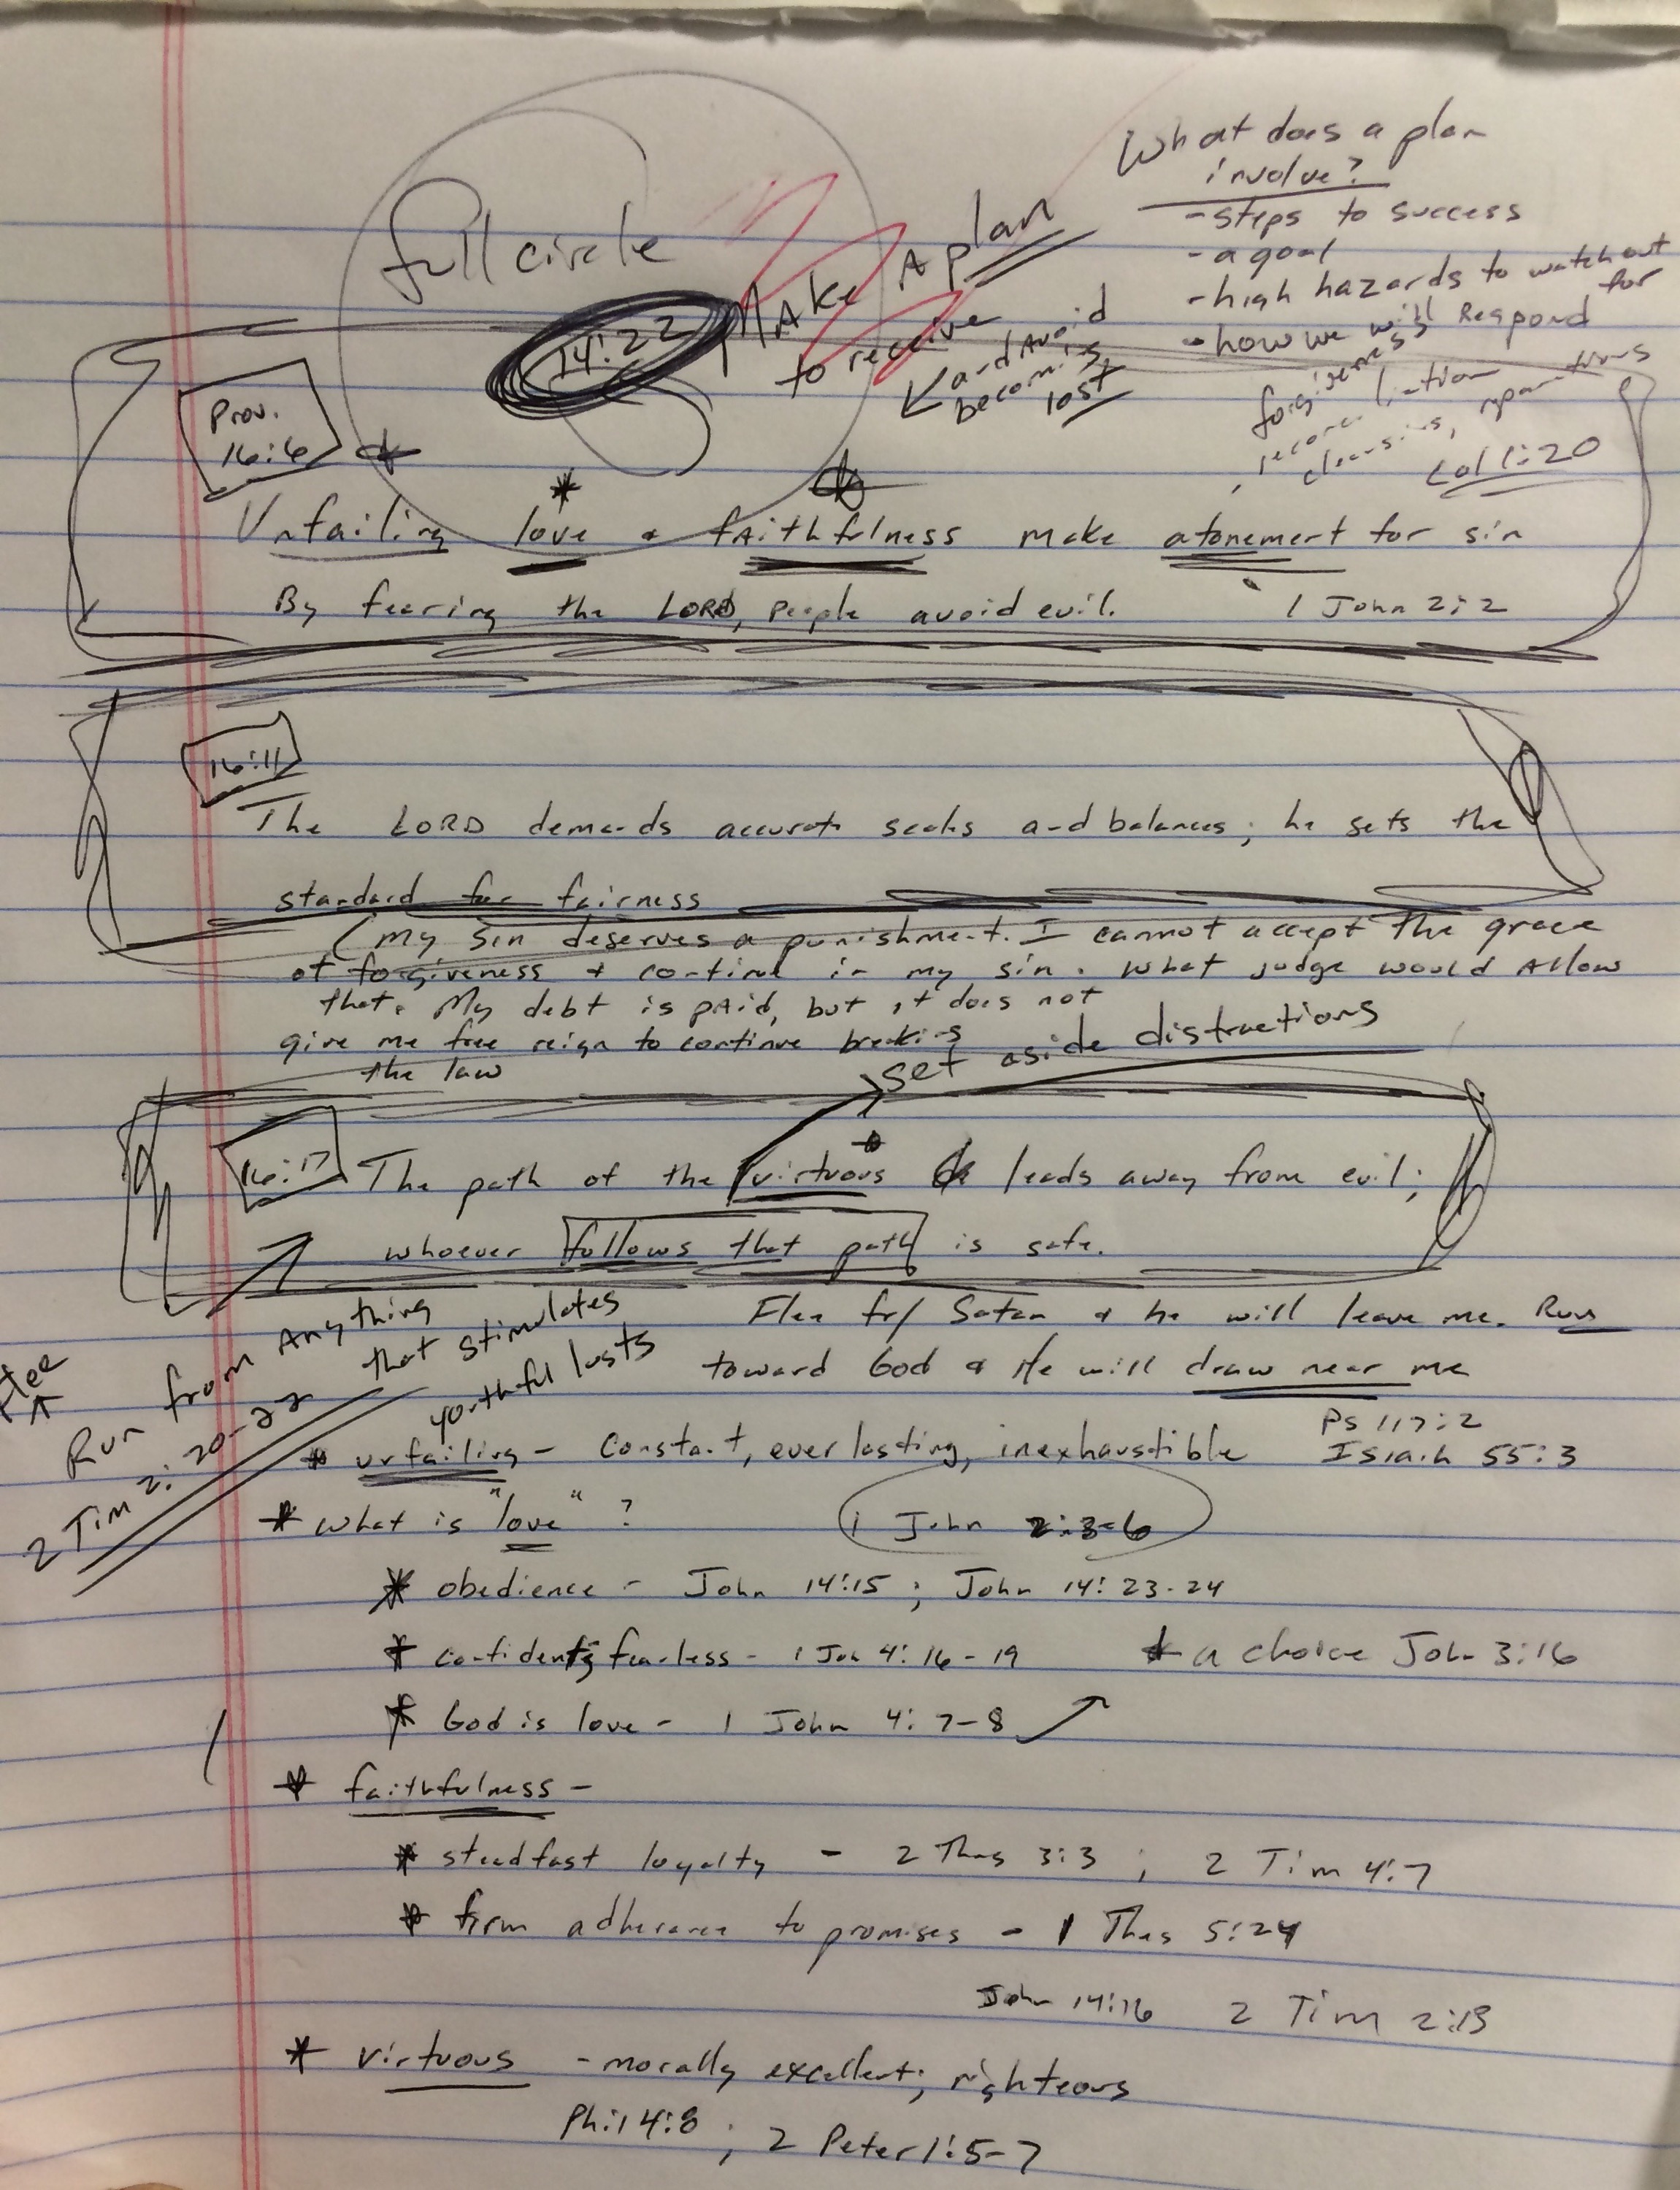 What does a plan
involve?
- steps to success
- a goal
- high hazards to watch out
for
- how we will Respond
full circle
MAke A plan
to receive
and Avoid
becoming
lost
14:22
forgiveness
cleansing,
Col 1:20
Prov.
16:6
Unfailing love & fAithfulness make atonement for sin
By fearing the LORD, people avoid evil.
1 John 2:2
16:11
The LORD demands accurate scales and balances; he sets the
standard for fairness
(My sin deserves a punishment. I cannot accept the grace
of forgiveness & continue in my sin. What judge would Allow
that. My debt is pAid, but it does not
give me free reign to continue breaking
the law
set aside distractions
16:17
The path of the virtuous leads away from evil;
whoever follows that path is safe.
Flee
Run from Anything
that stimulates
youthful lusts
2 Tim 2:20-22
Flee fr/ Satan & he will leave me. Run
toward God & He will draw near me
* unfailing - Constant, everlasting, inexhaustible
Ps 117:2
Isiaih 55:3
* What is "love"?
1 John 2:3-6
* obedience - John 14:15; John 14:23-24
* confident, fearless - 1 Joh 4:16-19
* a choice John 3:16
* God is love - 1 John 4:7-8
* faithfulness -
* steadfast loyalty - 2 Thes 3:3; 2 Tim 4:7
* firm adherance to promises - 1 Thes 5:24
John 14:16 2 Tim 2:13
* Virtuous - morally excellent; righteous
Phil 4:8; 2 Peter 1:5-7